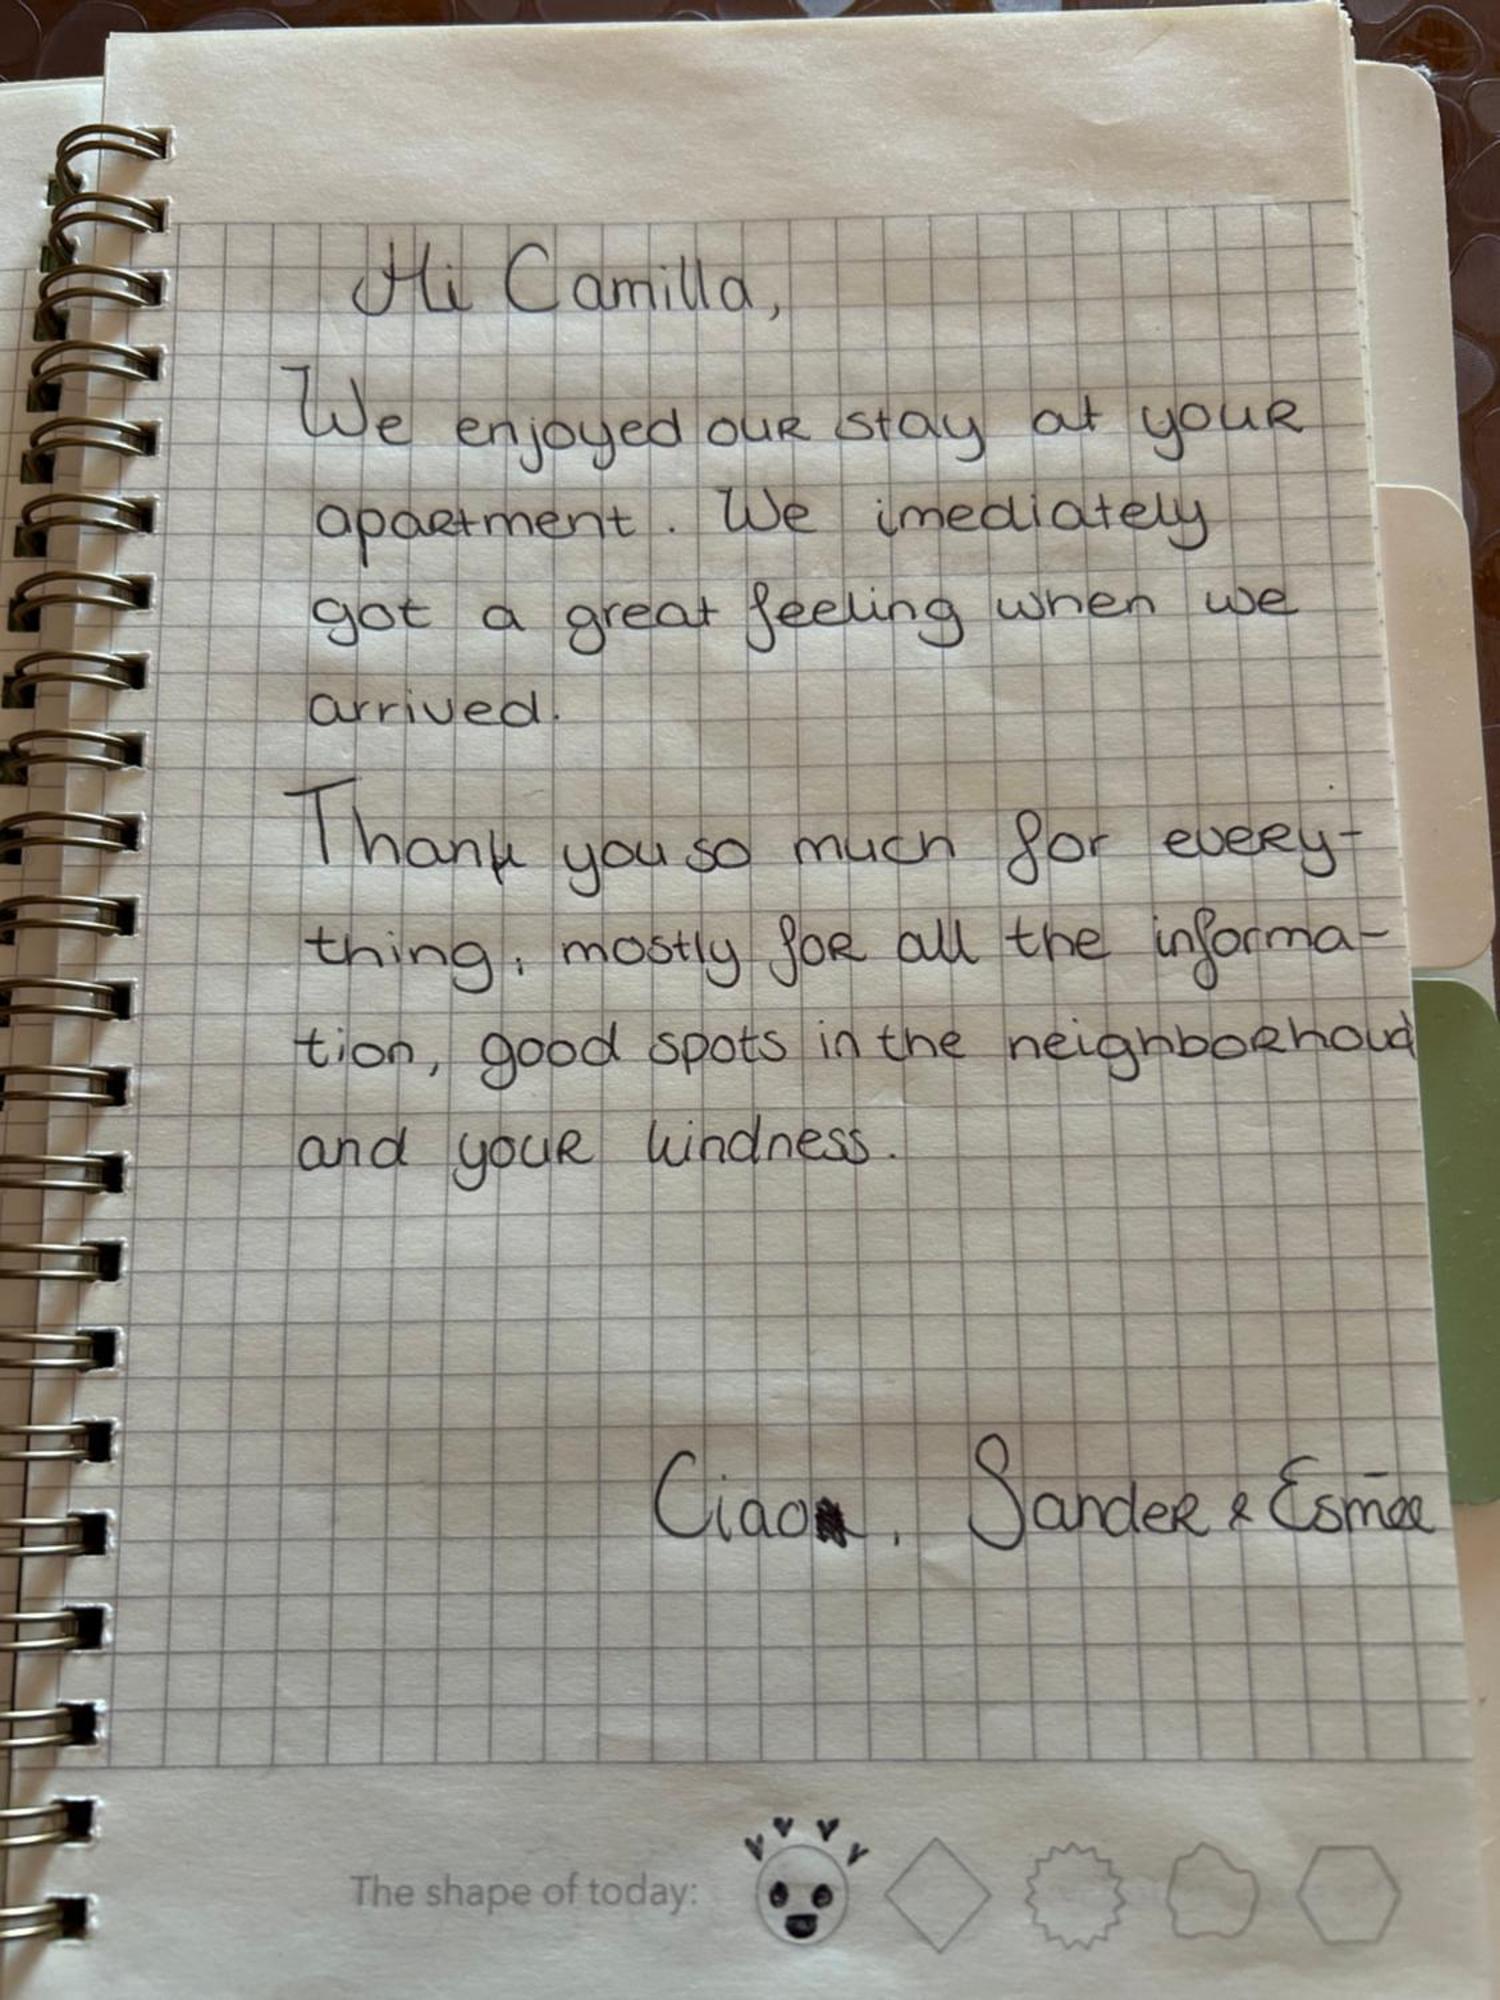 Hi Camilla,
We enjoyed our stay at your
apartment. We imediately
got a great feeling when we
arrived.
Thank you so much for every-
thing, mostly for all the informa-
tion, good spots in the neighborhoud
and your kindness.
Ciao, Sander & Esmée
The shape of today: